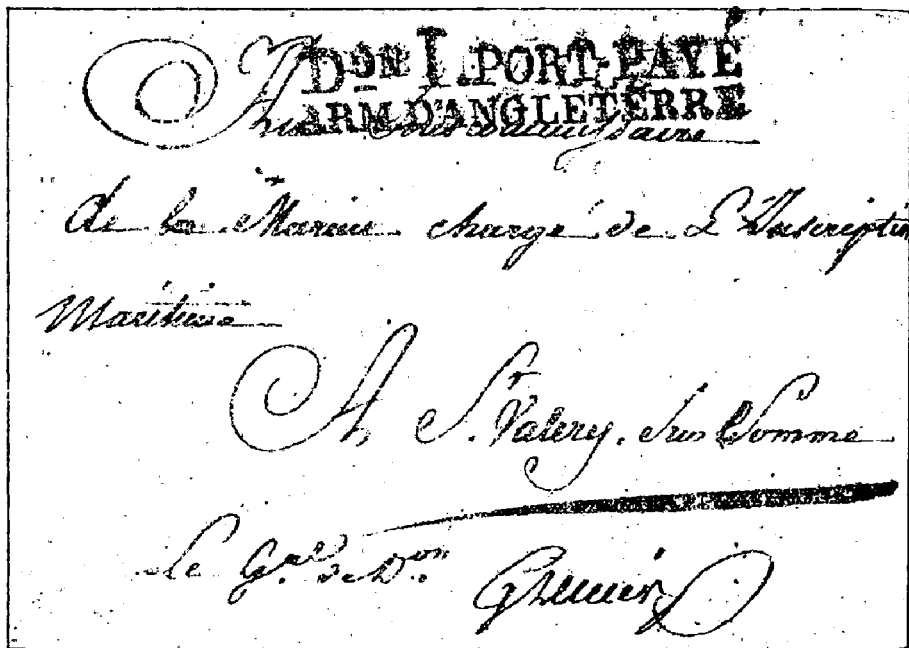 Don I. PORT-PAYÉ
ARM. D'ANGLETERRE
Au Sous Commissaire
de la Marine chargé de L'Inscription
Maritime
A St. Valery Sur Somme
Le Gral de Don